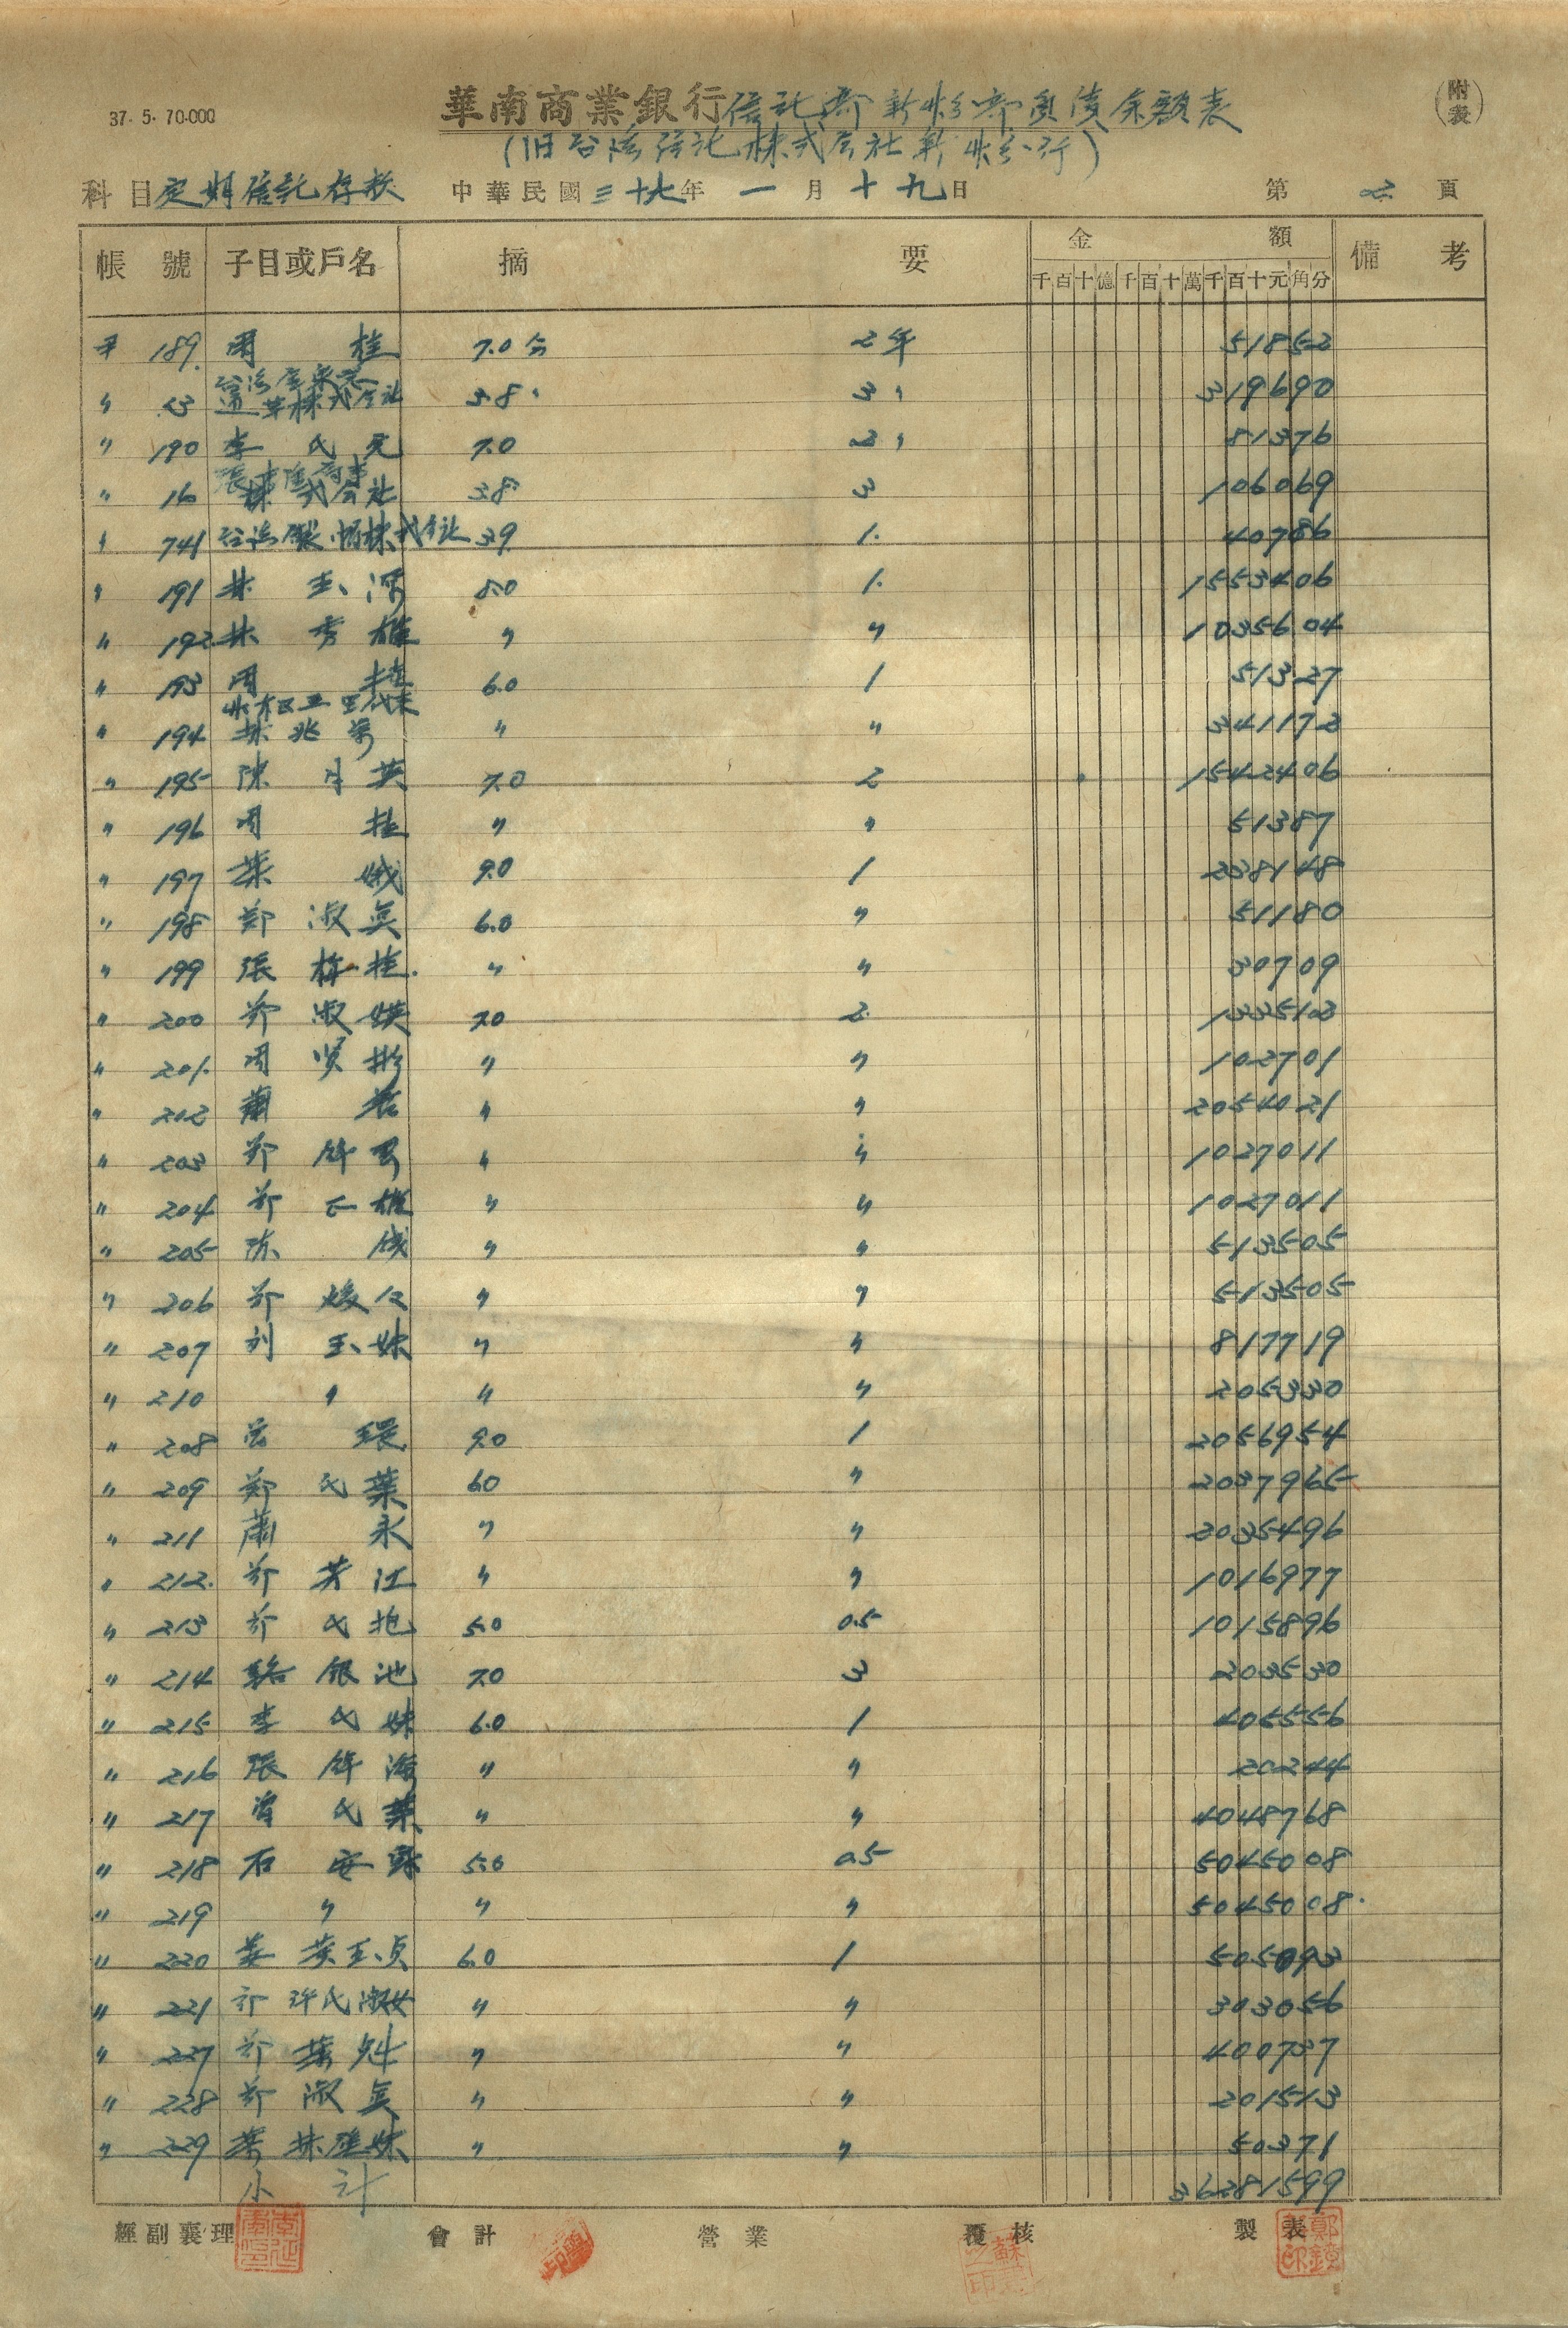 37. 5. 70.000
華南商業銀行信託部新竹分部負債余額表
(旧台湾信託株式会社新竹分行)
(附表)
科目 定期信託存款 中華民國三十七年一月十九日 第 2 頁
帳號 子目或戶名 摘要 金額 備考
千百十億千百十萬千百十元角分
189. 周桂 7.0分 2年 51852
〃 23 株式会社 3.8〃 3〃 319690
〃 190 李氏元 7.0 2〃 81376
〃 16 株式会社 3.8 3 106069
〃 741 台湾製帽株式会社 3.9 1. 40786
〃 191 林玉河 8.0 1. 1553406
〃 192 林秀雄 〃 〃 1035604
〃 193 周桂 6.0 1 51327
〃 194 林兆 〃 〃 341172
〃 195 陳月英 7.0 2 1542406
〃 196 周桂 〃 〃 51387
〃 197 葉娥 9.0 1 238148
〃 198 鄭淑英 6.0 〃 51180
〃 199 張桂 〃 〃 30709
〃 200 鄭淑媖 7.0 2. 1335103
〃 201. 周賢彬 〃 〃 102701
〃 202 蕭 〃 〃 2054021
〃 203 鄭 〃 〃 1027011
〃 204 鄭正雄 〃 〃 1027011
〃 205 陳 〃 〃 513505
〃 206 鄭媛 〃 〃 513505
〃 207 刘玉妹 〃 〃 817719
〃 210 〃 〃 〃 205330
〃 208 環 9.0 1 2056954
〃 209 鄭氏葉 6.0 〃 2037965
〃 211 蕭永 〃 〃 2035496
〃 212. 鄭芳江 〃 〃 1016977
〃 213 鄭氏抱 5.0 0.5 1015896
〃 214 駱銀池 7.0 3 203530
〃 215 李氏妹 6.0 1 405556
〃 216 張海 〃 〃 20244
〃 217 曾氏葉 〃 〃 4048768
〃 218 石安 5.0 0.5 5045008
〃 219 〃 〃 〃 5045008
〃 220 姜黄玉貞 6.0 1 505093
〃 221 鄭許氏淑女 〃 〃 303056
〃 227 鄭葉 〃 〃 400737
〃 228 鄭淑英 〃 〃 201513
〃 229 葉林隆妹 〃 〃 50371
小計 36281599
經副襄理 會計 營業 覆核 製表